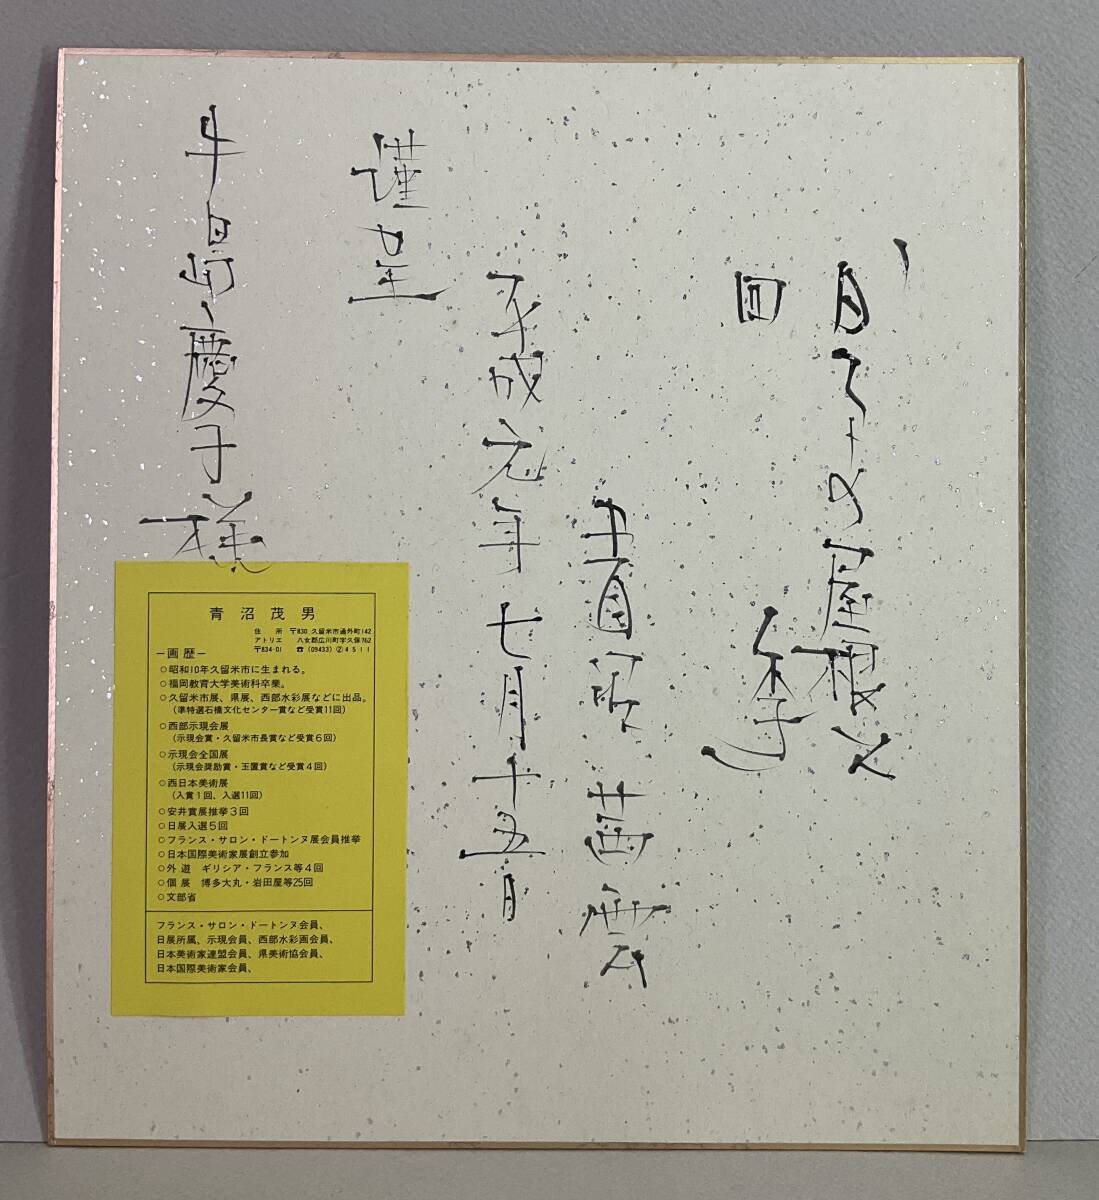 の屋根と
四季
青沼茜雲
平成元年七月十五日
謹呈
牛島慶子様
青沼茂男
住所 〒830 久留米市通外町142
アトリエ 八女郡広川町字久保762
〒834-01 ☎(09433)②4511
ー画歴ー
○昭和10年久留米市に生まれる。
○福岡教育大学美術科卒業。
○久留米市展、県展、西部水彩展などに出品。
(準特選石橋文化センター賞など受賞11回)
○西部示現会展
(示現会賞・久留米市長賞など受賞6回)
○示現会全国展
(示現会奨励賞・玉置賞など受賞4回)
○西日本美術展
(入賞1回、入選11回)
○安井賞展推挙3回
○日展入選5回
○フランス・サロン・ドートンヌ展会員推挙
○日本国際美術家展創立参加
○外遊 ギリシア・フランス等4回
○個展 博多大丸・岩田屋等25回
○文部省
フランス・サロン・ドートンヌ会員、
日展所属、示現会員、西部水彩画会員、
日本美術家連盟会員、県美術協会員、
日本国際美術家会員、